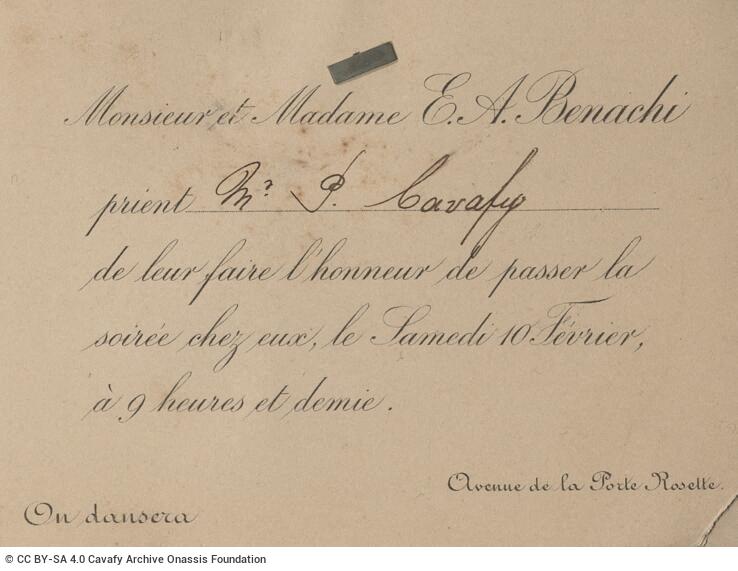 Monsieur et Madame E. A. Benachi
prient Mr. P. Cavafy
de leur faire l'honneur de passer la
soirée chez eux, le Samedi 10 Février,
à 9 heures et demie.
Avenue de la Porte Rosette.
On dansera
© CC BY-SA 4.0 Cavafy Archive Onassis Foundation